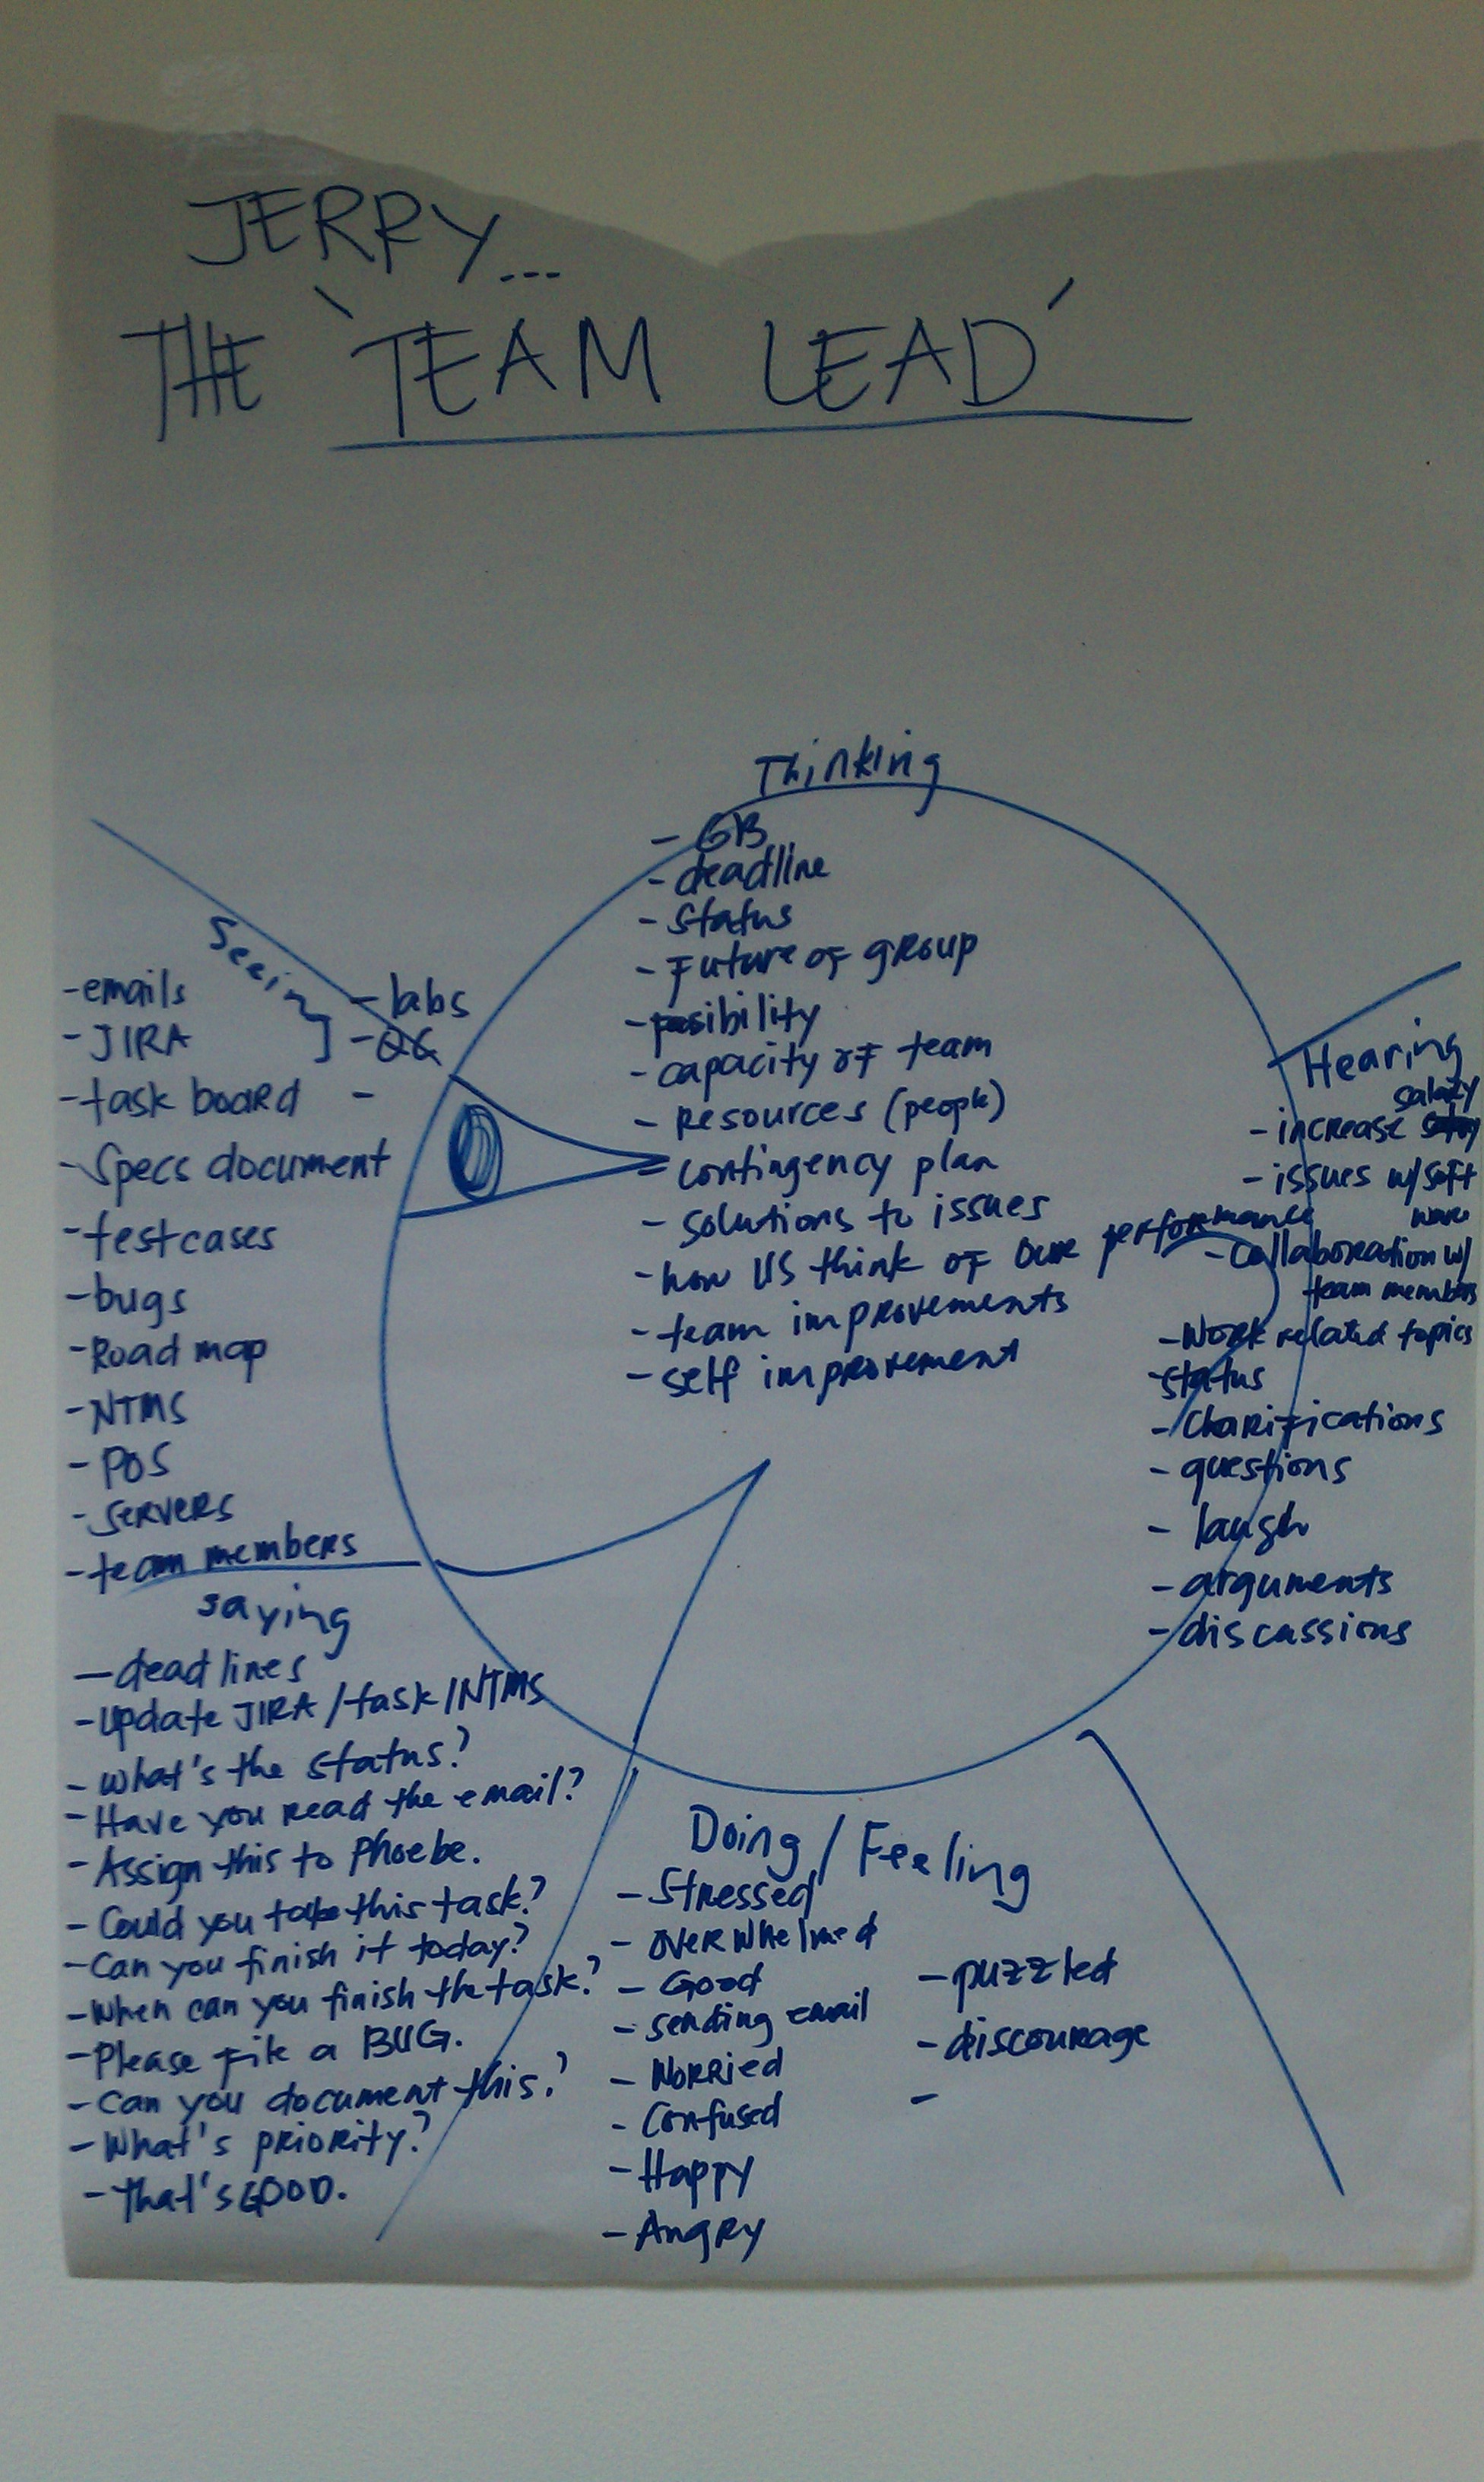 JERRY...
THE 'TEAM LEAD'
Thinking
- GB
- deadline
- status
- Future of group
- posibility
- capacity of team
- Resources (people)
- contingency plan
- solutions to issues
- how US think of our performance
- team improvements
- self improvement
Seeing
- emails
- JIRA
- task board
- Specs document
- testcases
- bugs
- Road map
- NTMS
- POS
- servers
- team members
- labs
-
Hearing
- increase salary
- issues w/ soft
ware
- collaboration w/
team members
- Work related topics
status
- Clarifications
- questions
- laugh
- arguments
- discassions
saying
- deadlines
- Update JIRA/task/NTMS
- What's the status?
- Have you read the email?
- Assign this to Phoebe.
- Could you take this task?
- Can you finish it today?
- When can you finish the task?
- Please file a BUG.
- Can you document this?
- What's priority?
- That's GOOD.
Doing / Feeling
- Stressed
- overwhelmed
- Good
- sending email
- Worried
- Confused
- Happy
- Angry
- puzzled
- discourage
-